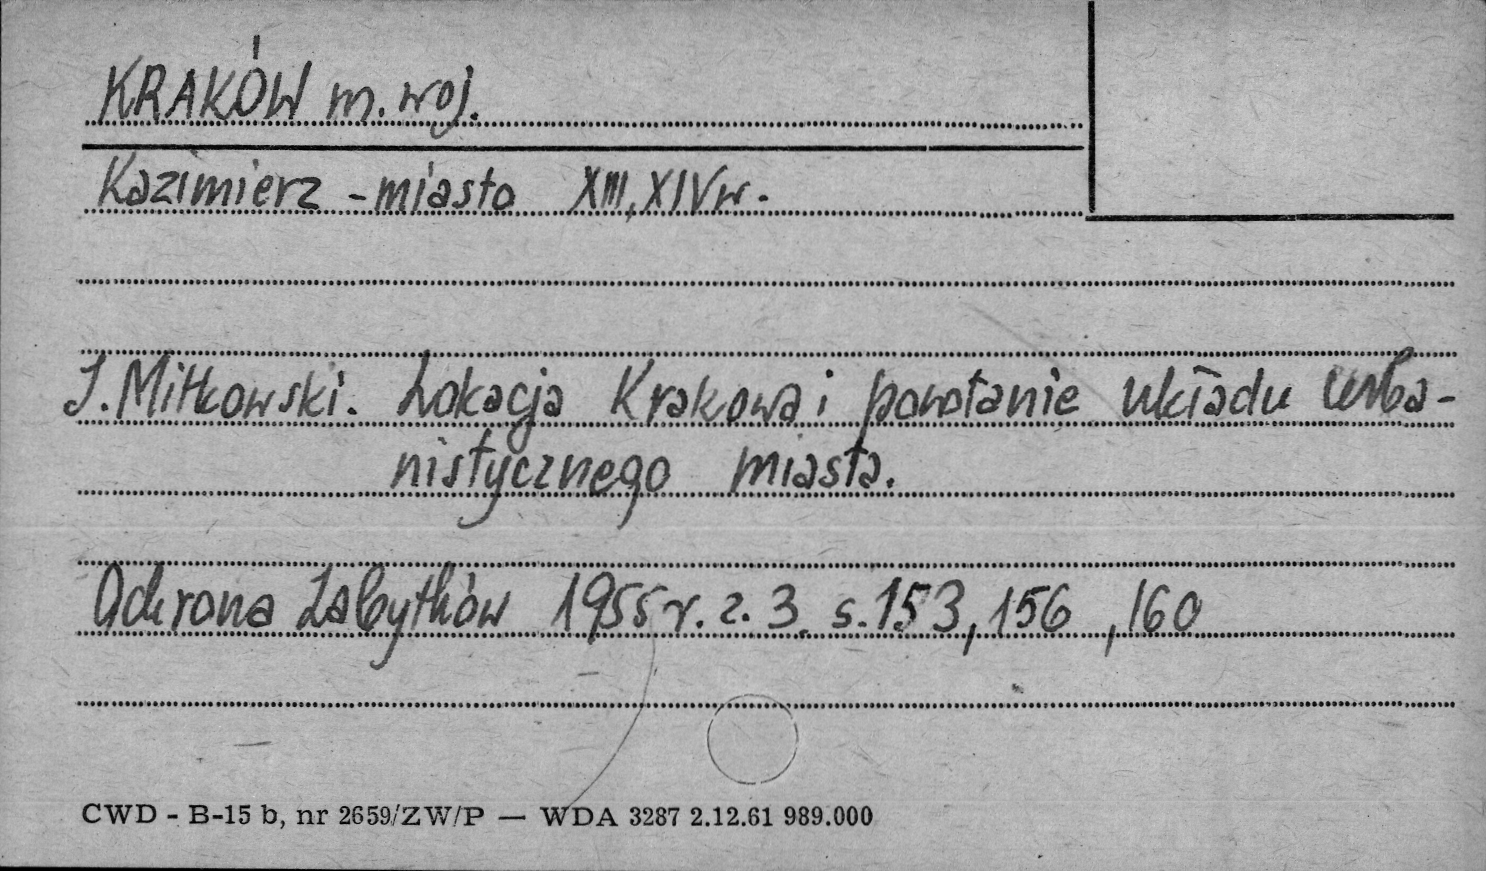 KRAKÓW m. woj.
Kazimierz - miasto XIII, XIV w.
J. Mitkowski. Lokacja Krakowa i powstanie układu urba-
nistycznego miasta.
Ochrona Zabytków 1955 r. z. 3. s. 153, 156, 160
CWD - B-15 b, nr 2659/ZW/P — WDA 3287 2.12.61 989.000